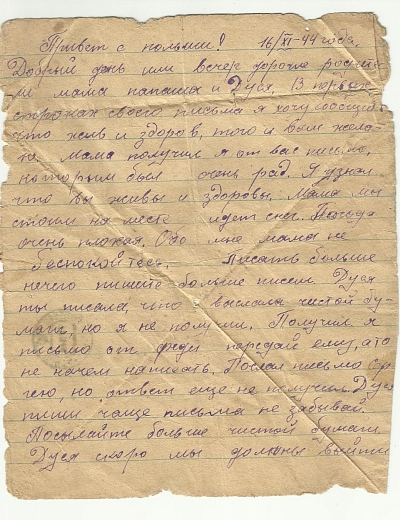 Привет с польши! 16/XI-44 года,
Добрый день или вечер дорогие родите
ли мама папаша и Дуся, В первых
строчках своего письма я хочу сообщить
что жив и здоров, того и вам жела-
ю. Мама получил я от вас письмо,
которым был очень рад. Я узнал
что вы живы и здоровы. Мама мы
стоим на месте идет снег. Погода
очень плохая. Обо мне мама не
беспокойтесь. Писать больше
нечего пишите больше писем. Дуся
ты писала, что выслала чистой бу-
маги, но я не получил. Получил я
письмо от феди передай ему, а то
не на чем написать. Послал письмо Сер
гею, но ответ еще не получил. Дуся
пиши чаще письма не забывай.
Посылайте больше чистой бумаги
Дуся скоро мы должны выйти